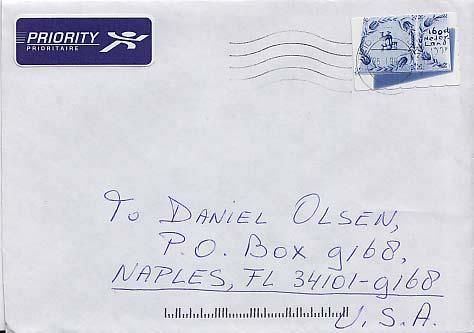 PRIORITY
PRIORITAIRE
To DANIEL OLSEN,
P.O. BOX 9168,
NAPLES, FL 34101-9168
U.S.A.